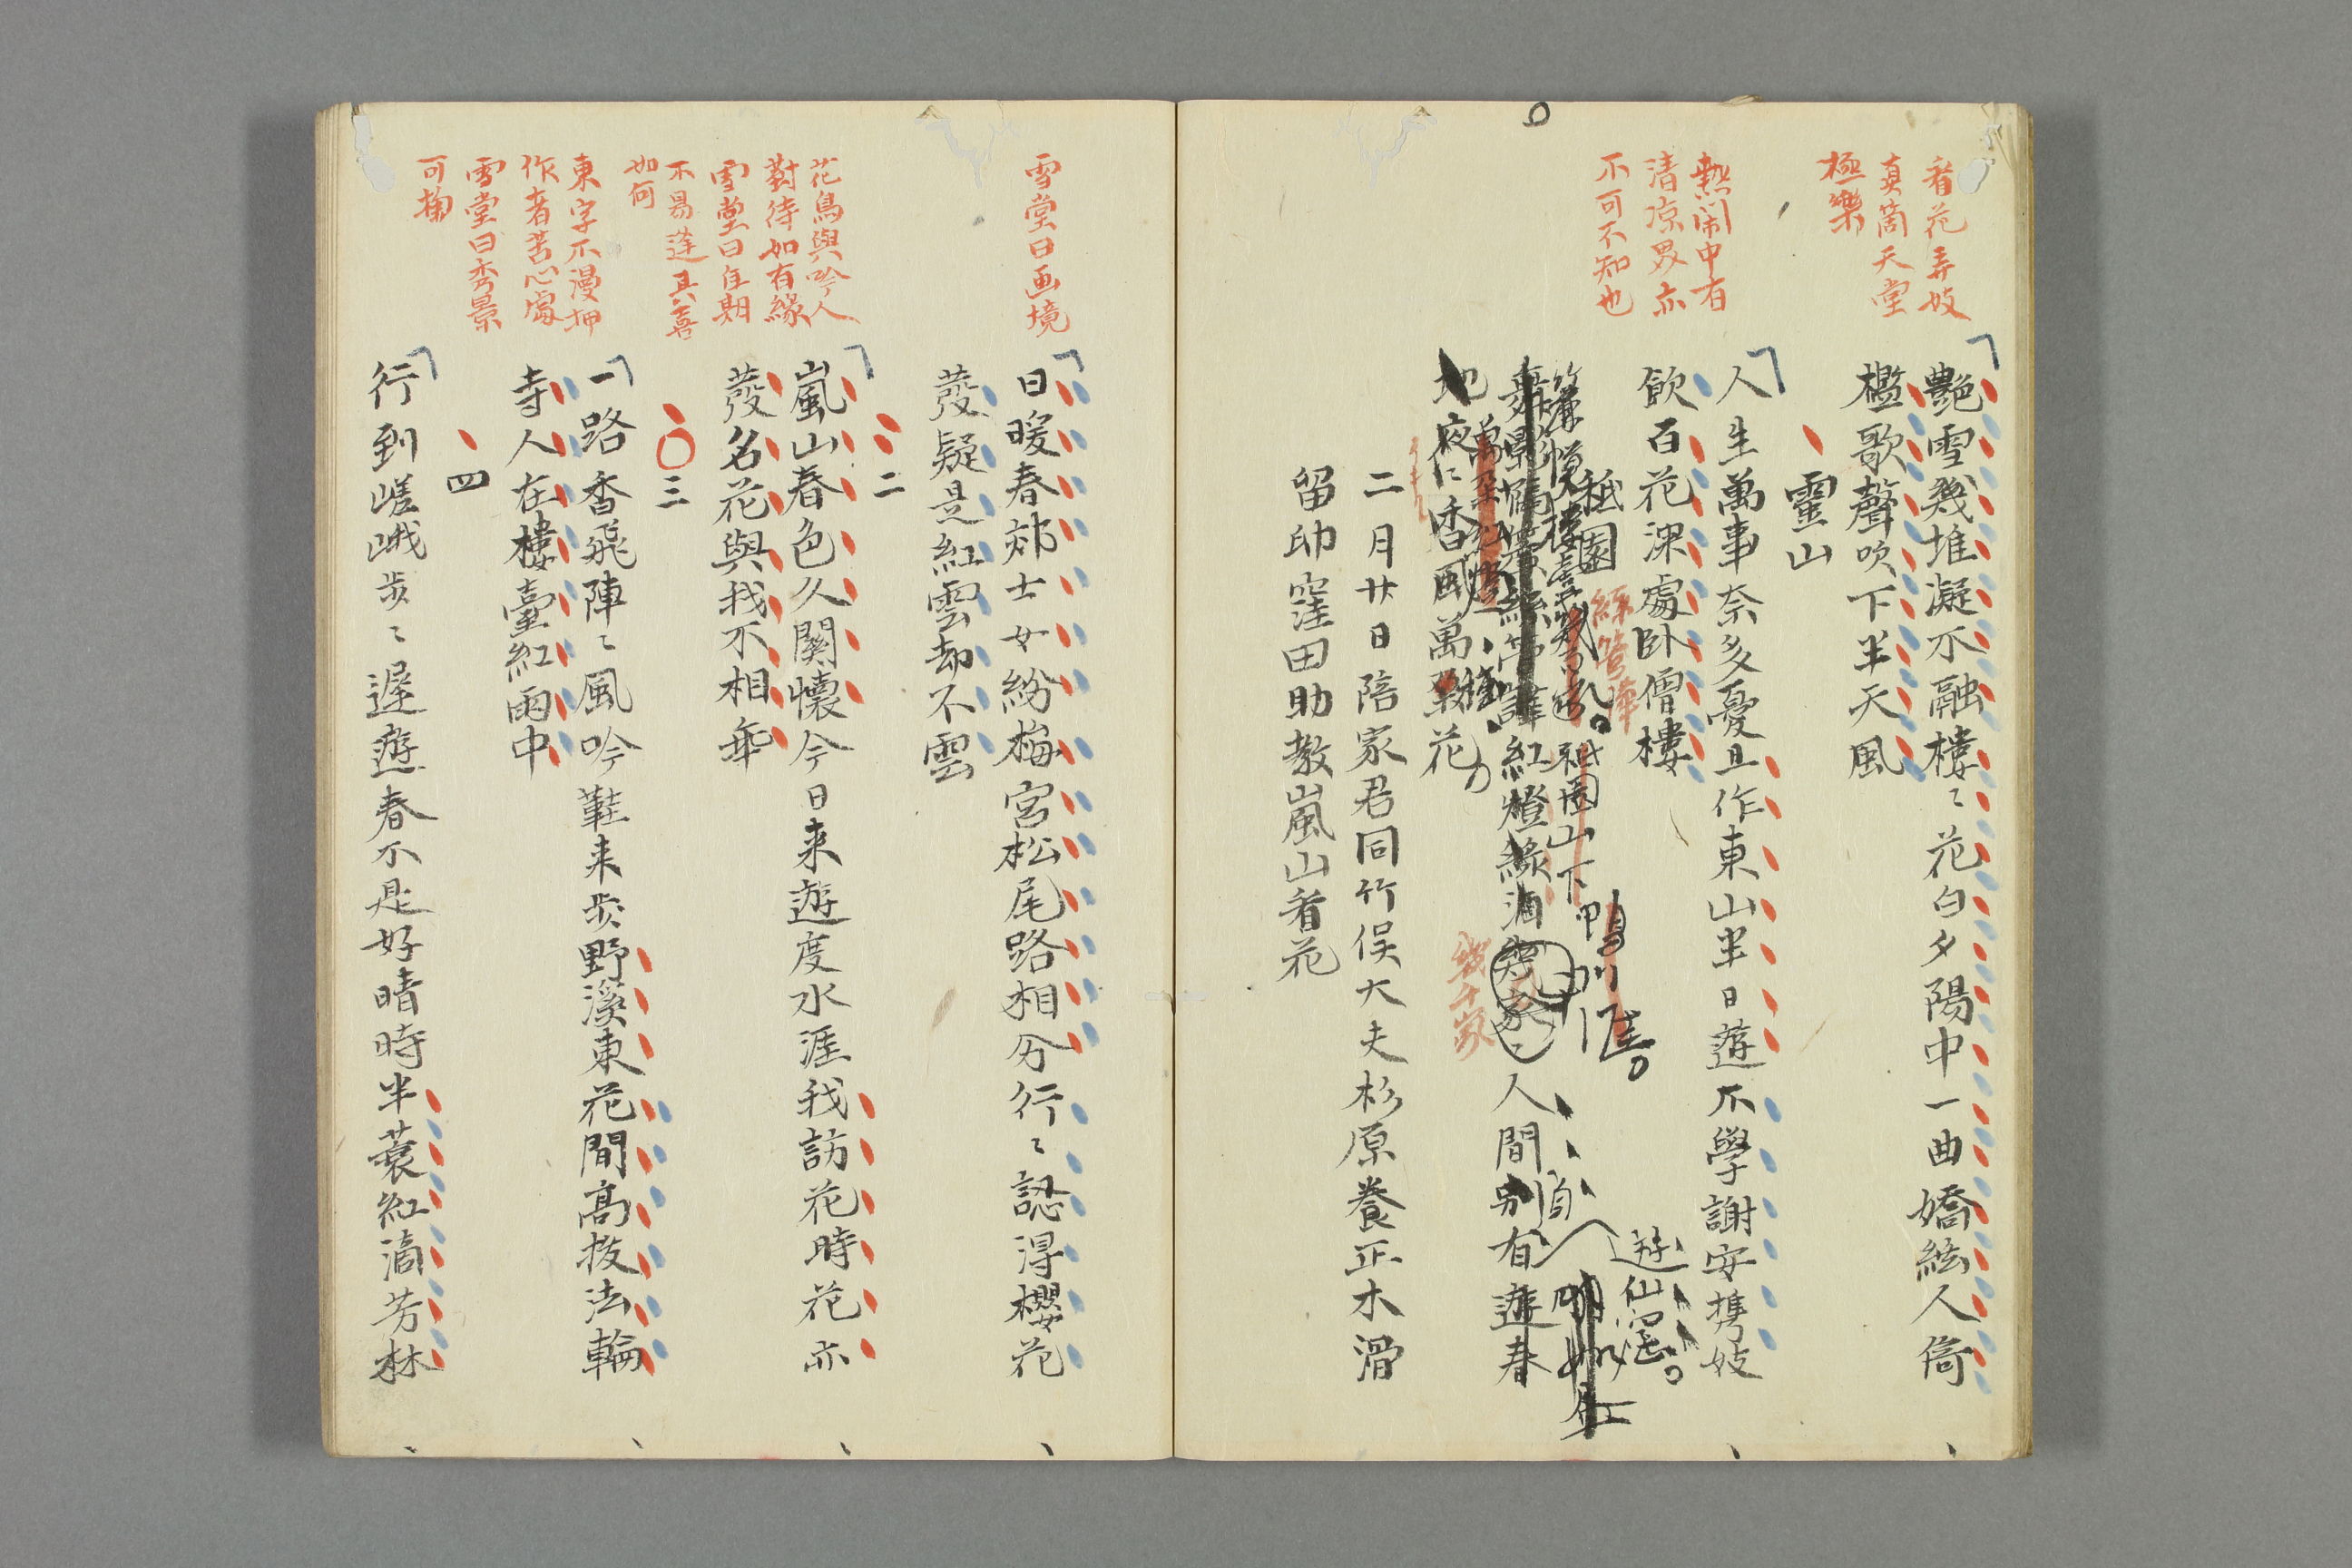 看花弄妓
真箇天堂
極樂
艷雪幾堆凝不融樓〻花白夕陽中一曲嬌絃人倚
檻歌聲吹下半天風
靈山
熱閙中有
清凉界亦
不可不知也
人生萬事奈多憂且作東山半日遊不學謝安携妓
飲百花深處臥僧樓
祇園
絲管嘩
遊仙窟
祇園山下鴨川涯
紅燈綠酒
幾十家
人間別有遊春
地夜〻香風萬
花
二月廿日陪家君同竹俣大夫杉原養正木滑
留帥窪田助教嵐山看花
雪堂曰画境
日暖春郊士女紛梅宮松尾路相分行〻認得櫻花
發疑是紅雲却不雲
二
花鳥與吟人
對待如有緣
雪堂曰佳期
不易逢其喜
如何
嵐山春色久關懷今日来遊度水涯我訪花時花亦
發名花與我不相乖
三
東字不漫押
作者苦心處
一路香飛陣〻風吟鞋来步野溪東花間高拨法輪
寺人在樓臺紅雨中
四
雪堂曰秀景
可掬
行到嵯峨步〻遲遊春不是好晴時半蓑紅滴芳林